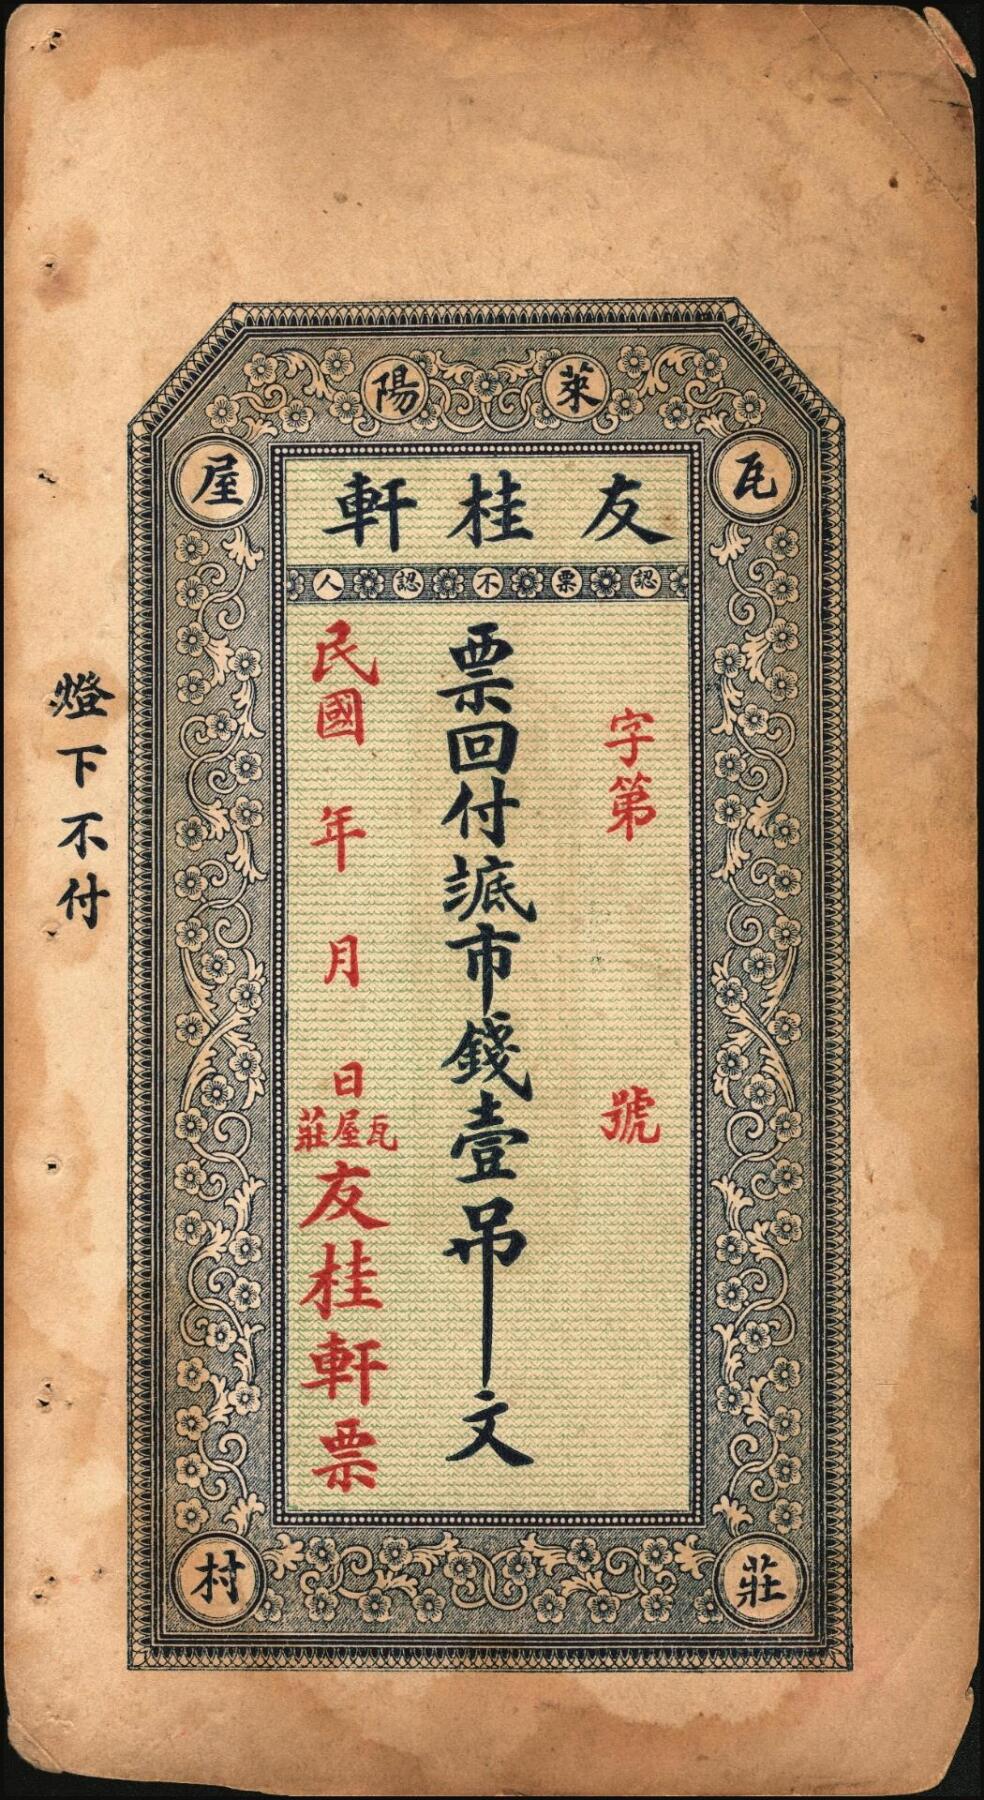 萊陽
瓦屋莊村
友桂軒
認票不認人
字第 號
票回付䟡市錢壹吊文
民國 年 月 日
瓦屋莊
友桂軒票
燈下不付